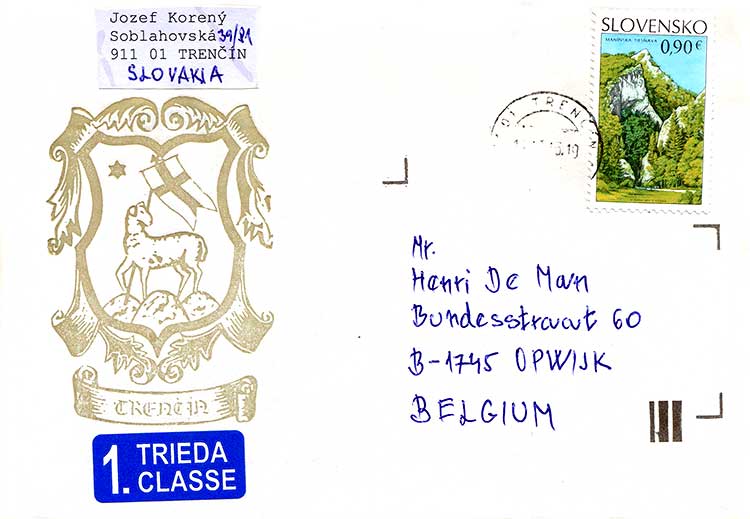 Jozef Korený
Soblahovská 39/81
911 01 TRENČÍN
SLOVAKIA
SLOVENSKO
MANÍNSKA TIEŠŇAVA
0,90 €
01 TRENČÍN
Mr.
Henri De Man
Bundesstraat 60
B-1745 OPWIJK
BELGIUM
TRENČÍN
1. TRIEDA
CLASSE